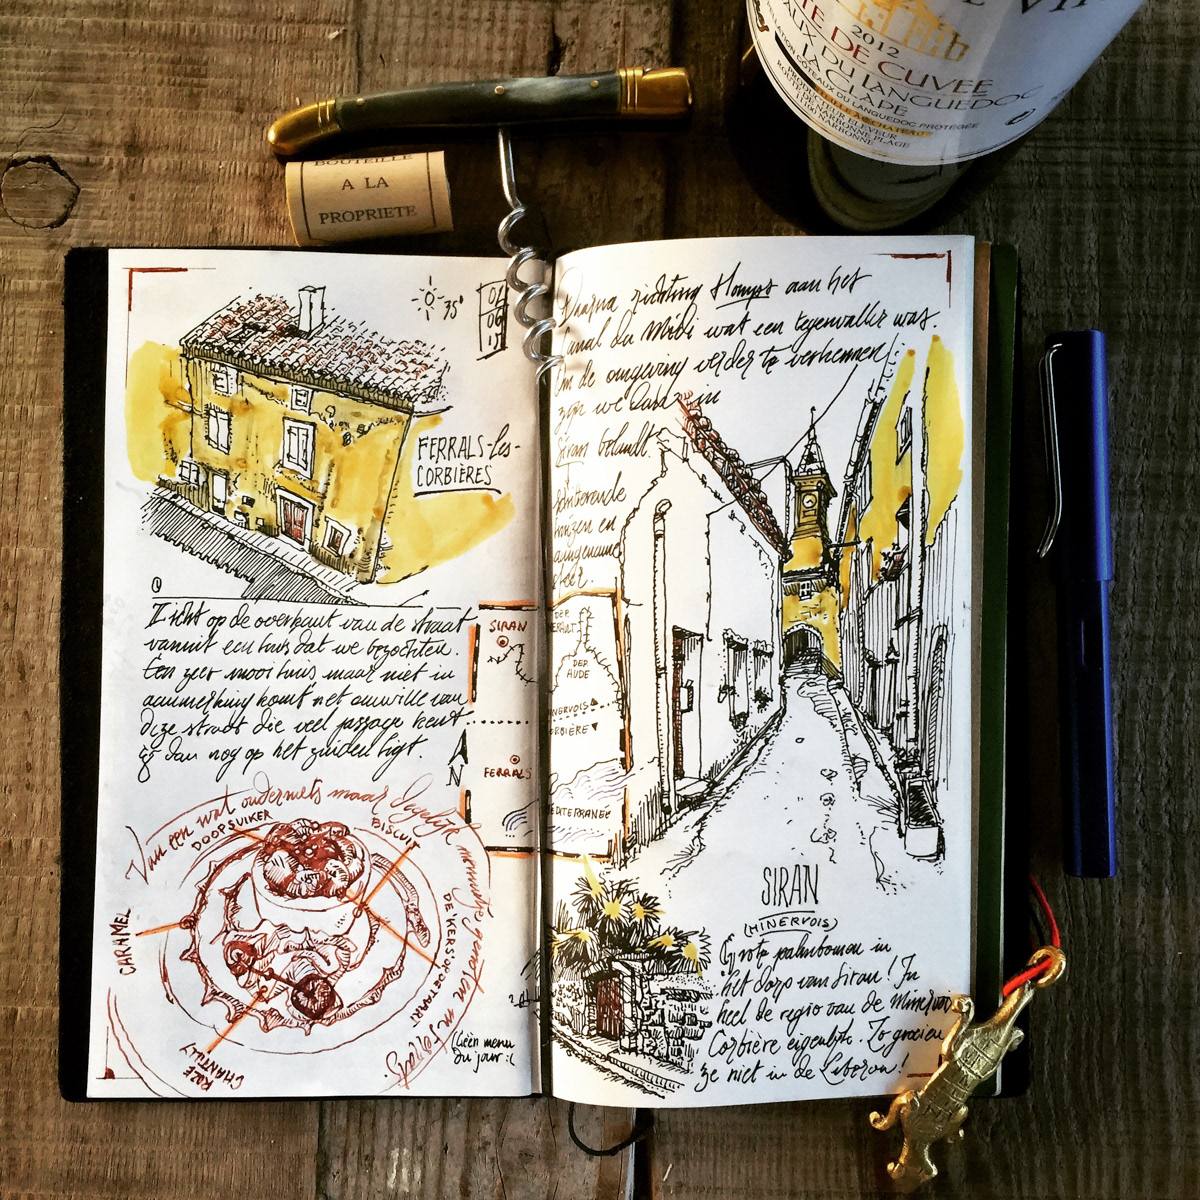 VI
2012
TE DE CUVEE
AUX DU LANGUEDOC
LA CLAPE
COTEAUX DU LANGUEDOC PROTÉGÉE
CHATEAU
ELEVEUR
NARBONNE PLAGE
BOUTEILLE
A LA
PROPRIETE
35°
01
06
15
FERRALS-les-
CORBIÈRES
Zicht op de overkant van de straat
vanuit een huis dat we bezochten.
Een zeer mooi huis maar niet in
aanmerking komt net omwille van
deze straat die veel passage kent
en dan nog op het zuiden ligt.
SIRAN
N
FERRALS
Van een wat ouderwets maar degelijk menuutje genoten in Ferrals
DOOPSUIKER
BISCUIT
DE 'KERS OP DE TAART'
CARAMEL
ROZE
CHANTILLY
(Géén menu
du jour :(
Daarna richting Homps aan het
Canal du Midi wat een tegenvaller was.
Om de omgeving verder te verkennen
zijn we in
Siran beland.
en
DER
HERAULT
DER
AUDE
MINERVOIS
CORBIÈRE
MEDITERRANÉE
SIRAN
(MINERVOIS)
Grote palmbomen in
het dorp van Siran! In
heel de regio van de Minervois
Corbière eigenlijk. Zo groeien
ze niet in de Luberon!